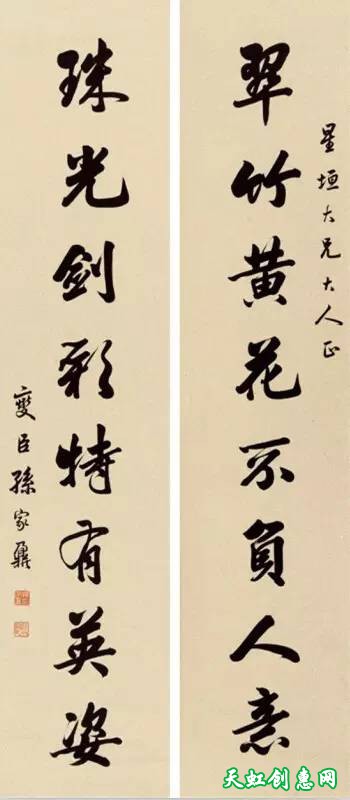 星垣大兄大人正
翠竹黄花不负人意
珠光剑彩特有英姿
燮臣孫家鼐
天虹创惠网